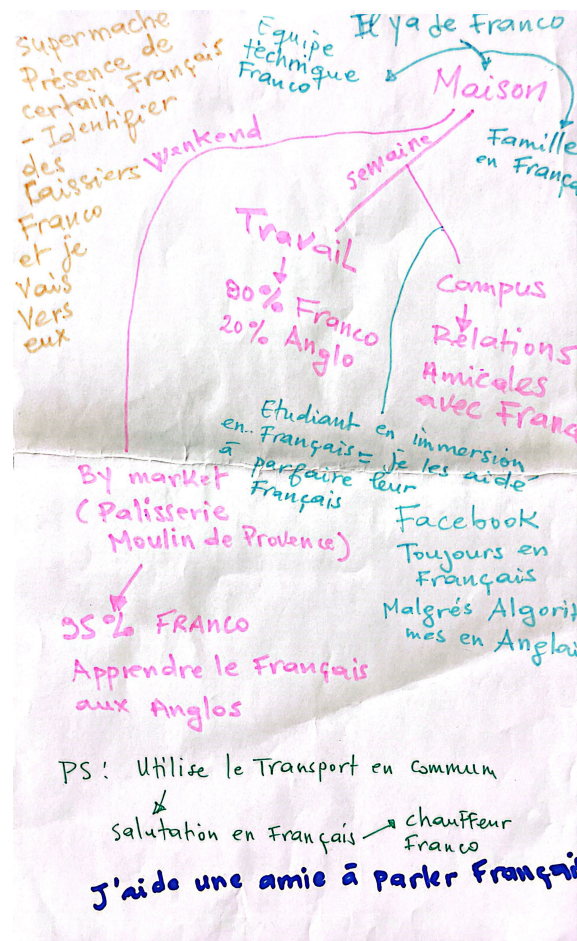 Supermache
Présence de
certain Français
- Identifier
des
Caissiers
Franco
et je
vais
vers
eux
Equipe
techniqque
Franco
Il ya de Franco
Maison
Famille
en França
Weekend
semaine
Travail
80% Franco
20% Anglo
Campus
Rélations
Amicales
avec Franc
Etudiant en immersion
en.. Français = je les aidé
à parfaire leur
Français
By market
(Palisserie
Moulin de Provence)
95% FRANCO
Apprendre le Français
aux Anglos
Facebook
Toujours en
Français
Malgrés Algorit
mes en Anglai
PS: Utilise le Transport en commun
Salutation en Français
chauffeur
Franco
J'aide une amie à parler Françai